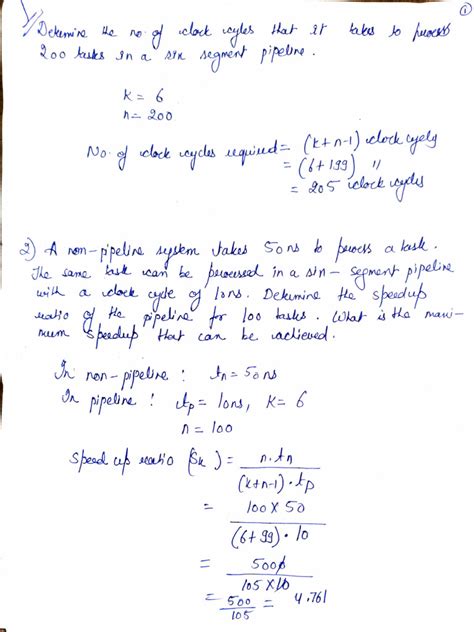 ①
1) Determine the no. of clock cycles that it takes to process
200 tasks in a six segment pipeline.
K = 6
n = 200
No. of clock cycles required = (k+n-1) clock cycles
= (6+199) "
= 205 clock cycles
2) A non-pipeline system takes 50ns to process a task.
The same task can be processed in a six-segment pipeline
with a clock cycle of 10ns. Determine the speedup
ratio of the pipeline for 100 tasks. What is the maxi-
mum speedup that can be achieved.
In non-pipeline : tn = 50ns
In pipeline : tp = 10ns, K = 6
n = 100
Speed up ratio (Sk) = n.tn
(k+n-1).tp
= 100 X 50
(6+99).10
= 5000
105 X 10
= 500 = 4.761
105